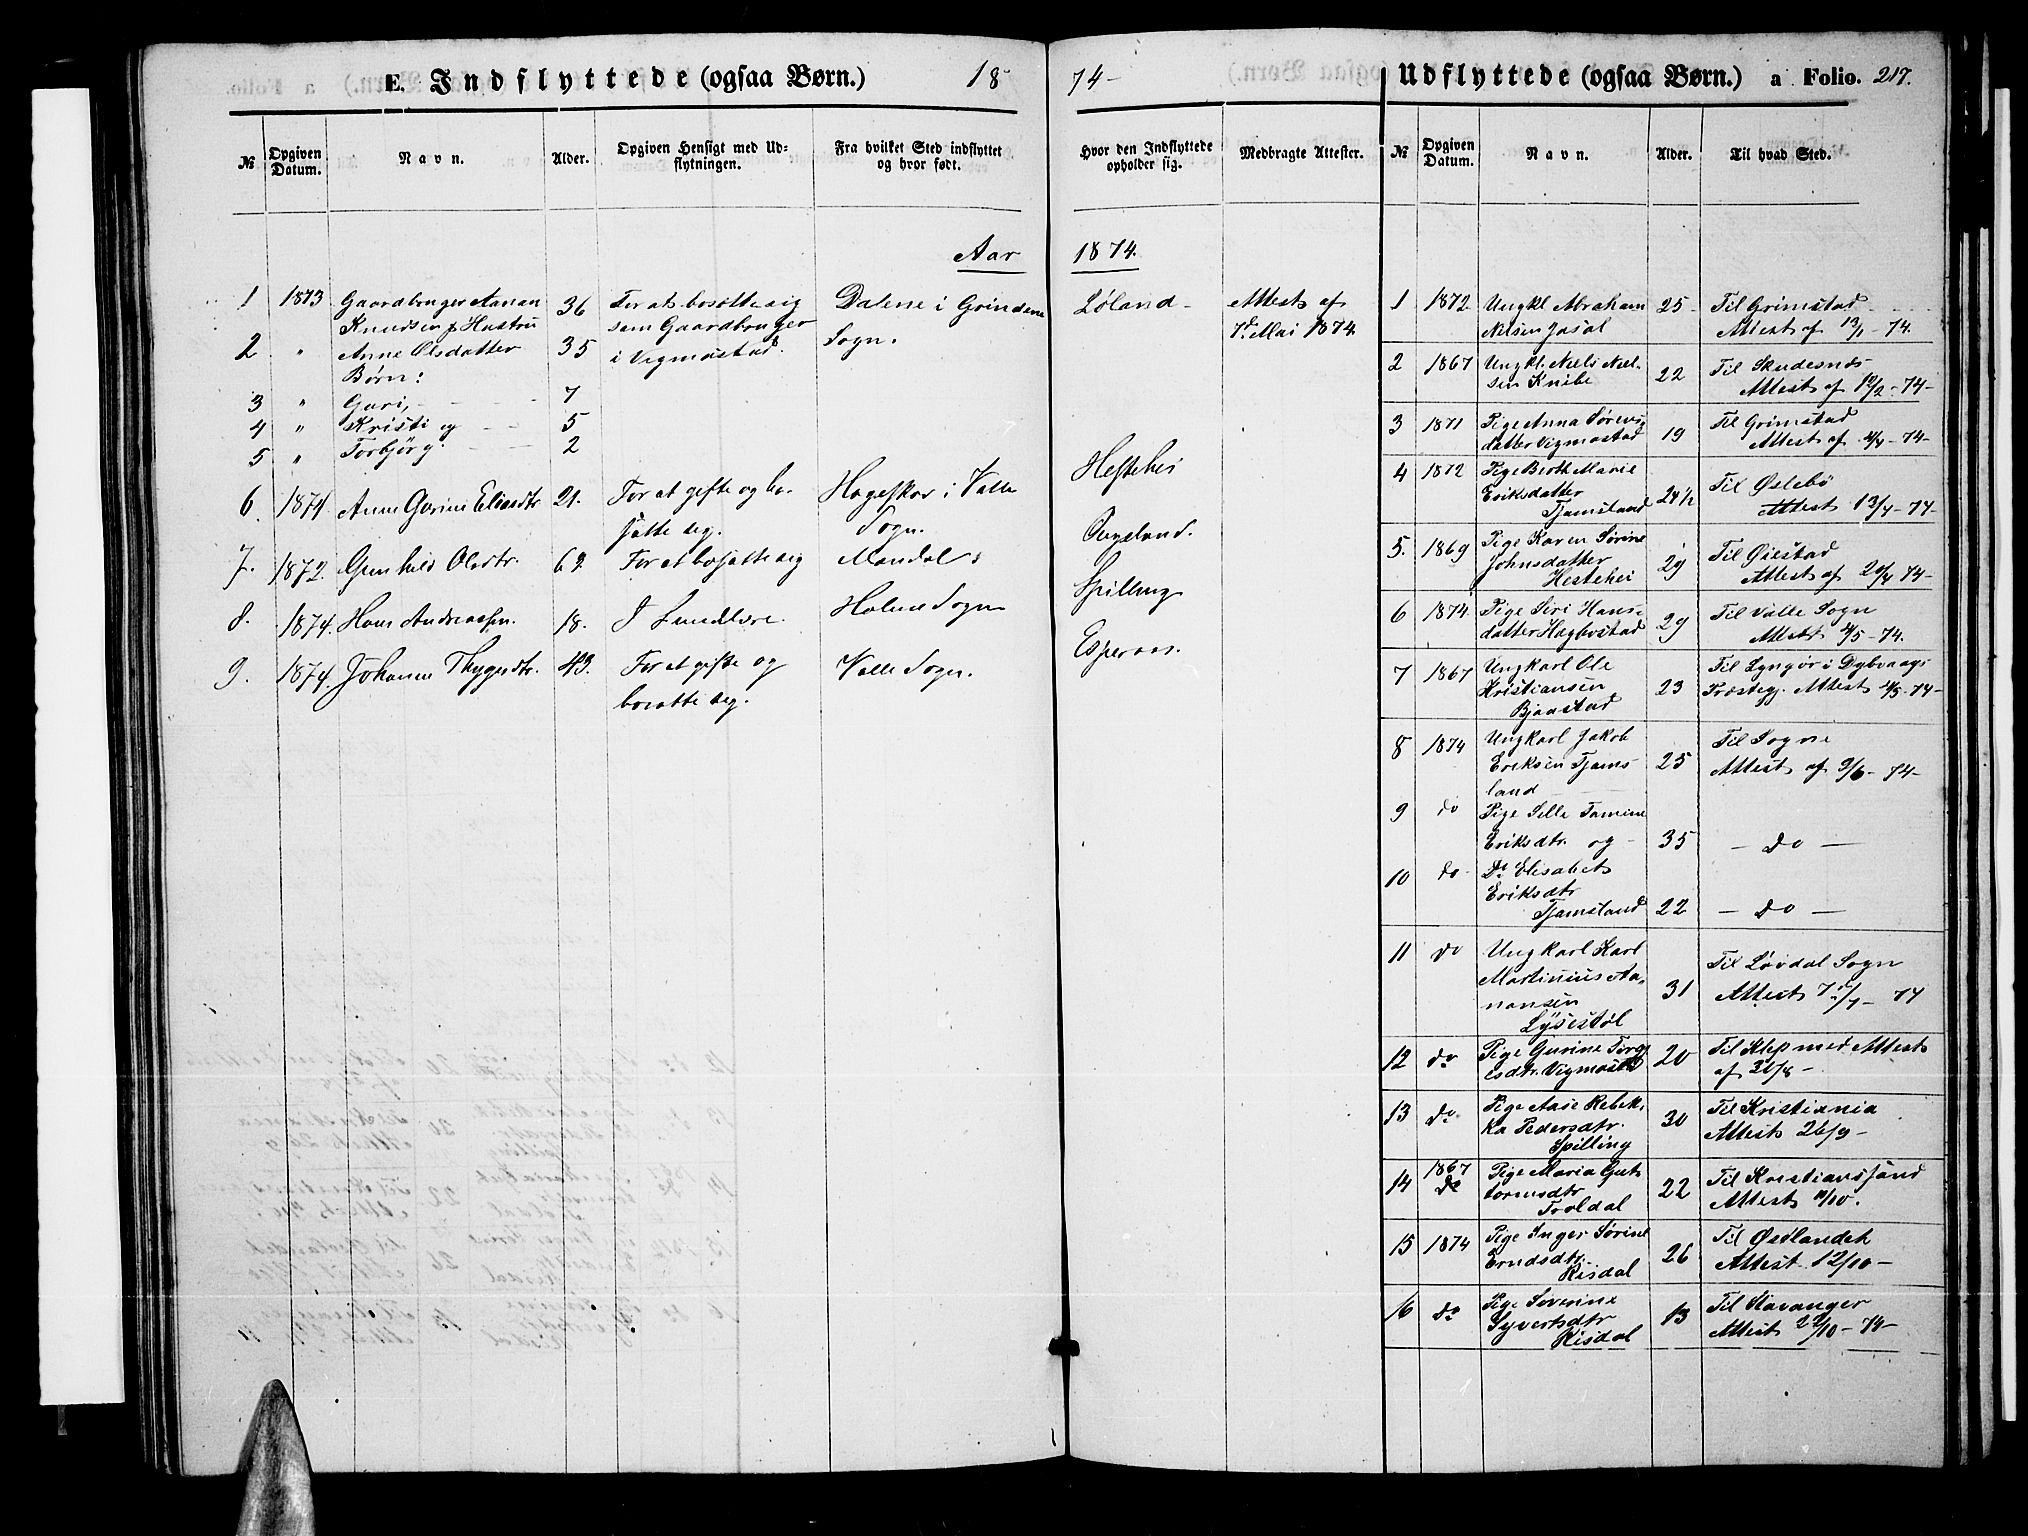 E. Indflyttede (ogsaa Børn.) 18
74- Udflyttede (ogsaa Børn.) a Folio. 217.
№ Opgiven Datum. Navn. Alder. Opgiven Hensigt med Udflytningen. Fra hvilket Sted indflyttet og hvor født.
Hvor den Indflyttede opholder sig. Medbragte Attester. № Opgiven Datum. Navn. Alder. Til hvad Sted.
Aar 1874.
1 1873 Gaardbruger Aanan 36 For at bosætte sig Dalene i Grindem Løland - Attest af
Knudsen & Hustru som Gaardbruger Sogn. 7d Mai 1874.
2 " Anne Olsdatter 35 i Vigmostad.
Børn:
3 " Guri, - 7
4 " Kristi og - 5
5 " Torbjørg. - 2
6. 1874. Anne Gurine Eliasdtr 21. For at gifte og bo- Hageskar i Valle Hestehei
sætte sig. Sogn.
7. 1872. Gunhild Olsdtr. 62 For at bosætte sig Mandal Øvyeland.
8. 1874. Hans Andreassen. 18. I Smedlære. Holme Sogn Spilling
9. 1874. Johanne Thygesdtr. 43. For at gifte og Valle Sogn. Esperaas.
bosætte sig.
1 1872 Ungkl Abraham 25 - Til Grimstad
Nilsen Jaasal Attest af 13/1 - 74.
2 1867 Ungkl. Niels Niel- 22 Til Skudesnæs
sen Knibe Attest af 12/2 - 74 -
3 1871 Pige Anna Sørens- 19 Til Grimstad
datter Vigmostad Attest af 4/4 - 74 -
4 1872 Pige Berth Marie Til Øslebø
Eriksdatter 24 1/2 Attest 13/4 - 74 -
Tjamsland
5. 1869 Pige Karen Sørine Til Øiestad
Johnsdatter 29 Attest af 20/4 74 -
Hestehei
6 1874 Pige Siri Hans- 29 Til Valle Sogn
datter Hægbostad Attest 4/5 - 74.
7 1867 Ungkarl Ole Til Lyngør i Dybvaags
Kristiansen 23 Præstegj. Attest 4/5 - 74 -
Bjaastad
8 1874 Ungkarl Jakob Til Sogne
Eriksen Tjams- 25 Attest af 3/6 - 74 -
land
9 do Pige Sille Tomine
Eriksdtr. og - 35 - Do -
10 do - Do Elisabet
Eriksdtr
Tjamsland 22 - Do -
11 do Ungkarl Karl Til Løvdal Sogn
Martinius Aa- 31 Attest 7/7 - 74
nansen
Lysestøl
12 do Pige Gurine Torg- 20 Til Klep med Attest
esdtr. Vigmostd af 31/8 -
13 do Pige Aase Rebek- 30 Til Kristiania
ka Pedersdtr. Attest 26/9 -
Spilling
14 1867 Pige Maria Gut- 22 Til Kristianssand
do tormsdtr Attest 9/10.
Troldal
15 1874 Pige Inger Sørine 26 Til Østlandet
Erndsdtr. Attest 12/10 -
Risdal
16 do Pige Severine 13 Til Stavanger
Syvertsdtr Attest 22/10 - 74 -
Risdal